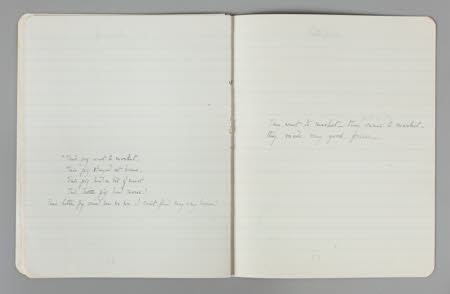 "This pig went to market.
This pig stayed at home.
This pig had a bit of meat
This little pig had none!
This little pig cried wee wee wee I can't find my way home!
This went to market. They came to market.
they made very good